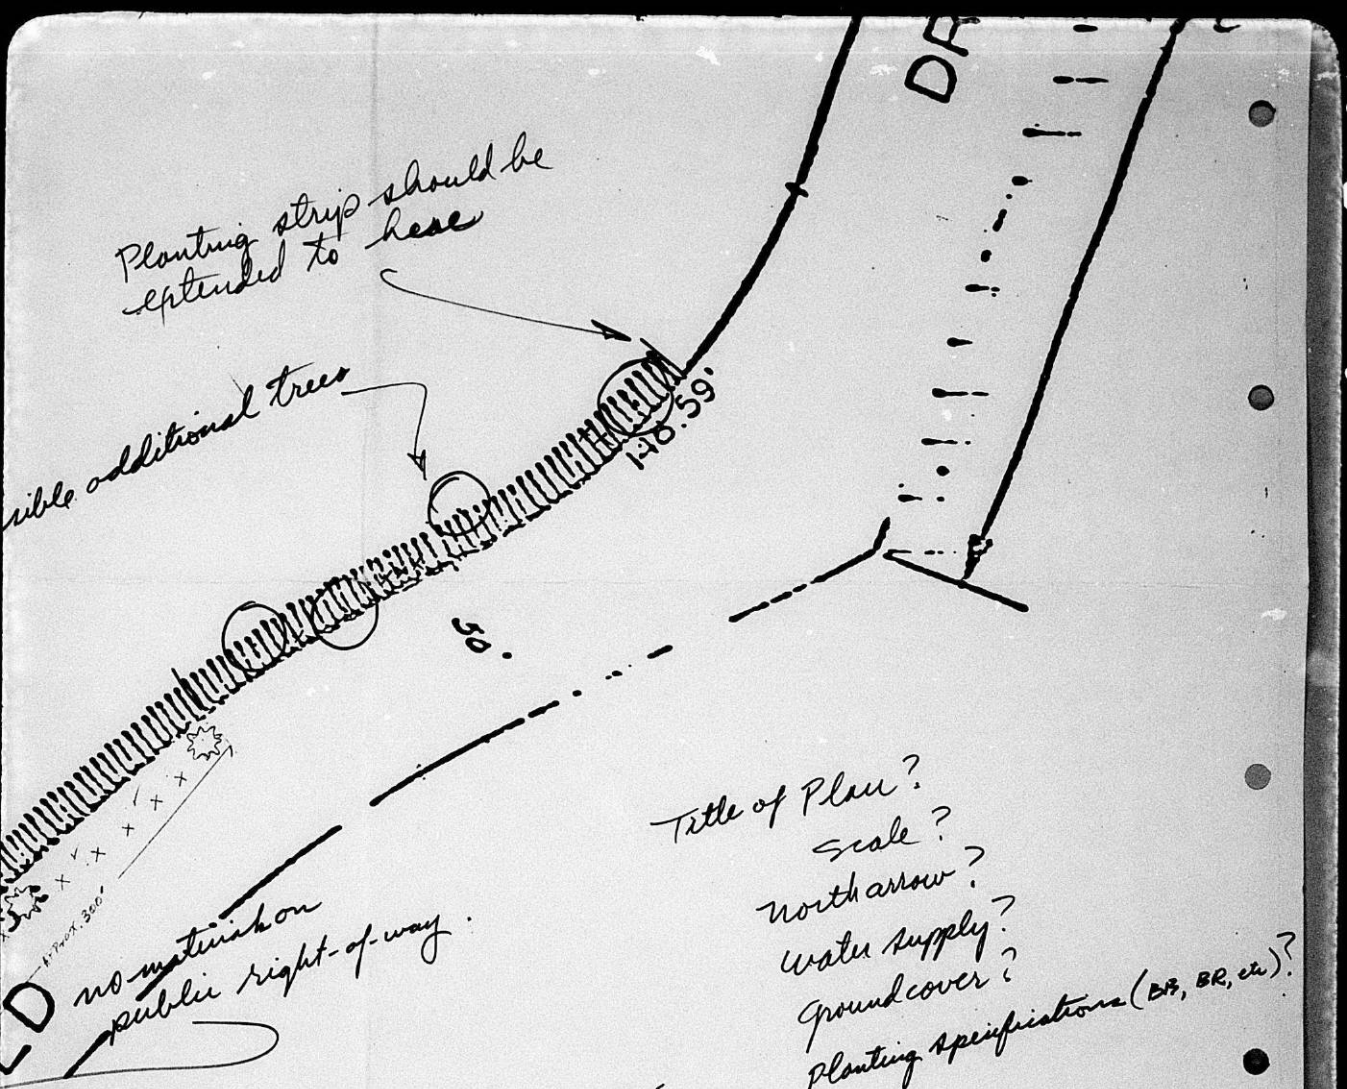 DR
Planting strip should be
extended to here
additional trees
140.59'
50'
Approx. 300'
no materials on
public right-of-way.
Title of Plan?
Scale?
North arrow?
Water supply?
Groundcover?
Planting specifications (BB, BR, etc)?